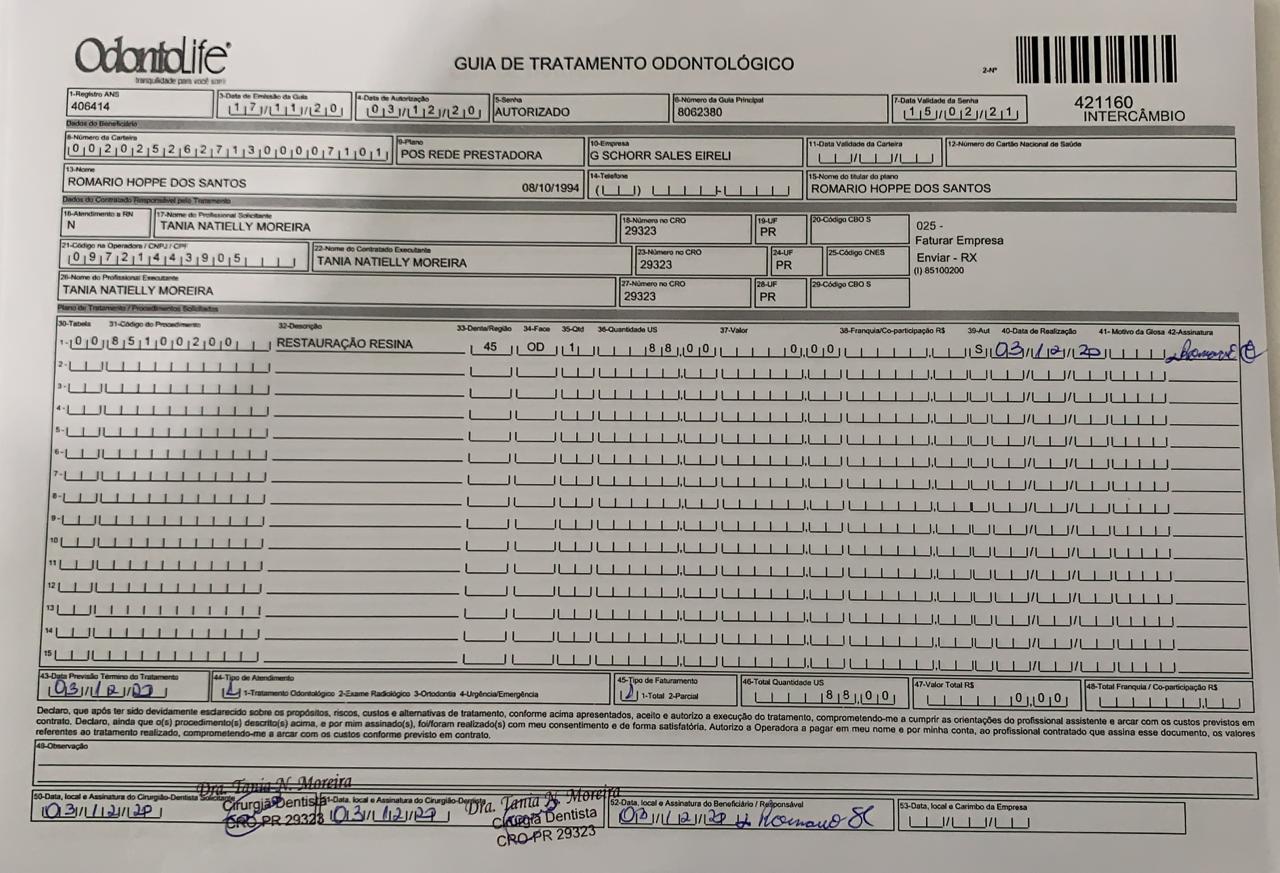 OdontoLife®
tranquilidade para você sorrir
GUIA DE TRATAMENTO ODONTOLÓGICO
2-Nº
421160
INTERCÂMBIO
1-Registro ANS
406414
3-Data de Emissão da Guia
17/11/20
4-Data de Autorização
03/12/20
5-Senha
AUTORIZADO
6-Número da Guia Principal
8062380
7-Data Validade da Senha
15/02/21
Dados do Beneficiário
8-Número da Carteira
00202526271300007101
9-Plano
POS REDE PRESTADORA
10-Empresa
G SCHORR SALES EIRELI
11-Data Validade da Carteira
12-Número do Cartão Nacional de Saúde
13-Nome
ROMARIO HOPPE DOS SANTOS 08/10/1994
14-Telefone
15-Nome do titular do plano
ROMARIO HOPPE DOS SANTOS
Dados do Contratado Responsável pelo Tratamento
16-Atendimento a RN
N
17-Nome do Profissional Solicitante
TANIA NATIELLY MOREIRA
18-Número no CRO
29323
19-UF
PR
20-Código CBO S
025 -
Faturar Empresa
Enviar - RX
(I) 85100200
21-Código na Operadora / CNPJ / CPF
09721443905
22-Nome do Contratado Executante
TANIA NATIELLY MOREIRA
23-Número no CRO
29323
24-UF
PR
25-Código CNES
26-Nome do Profissional Executante
TANIA NATIELLY MOREIRA
27-Número no CRO
29323
28-UF
PR
29-Código CBO S
Plano de Tratamento / Procedimentos Solicitados
30-Tabela 31-Código do Procedimento 32-Descrição 33-Dente/Região 34-Face 35-Qtd 36-Quantidade US 37-Valor 38-Franquia/Co-participação R$ 39-Aut 40-Data de Realização 41- Motivo da Glosa 42-Assinatura
1- 00 85100200 RESTAURAÇÃO RESINA 45 OD 1 88,00 0,00 S 03/12/20
2-
3-
4-
5-
6-
7-
8-
9-
10
11
12
13
14
15
43-Data Previsão Término do Tratamento
03/12/20
44-Tipo de Atendimento
1 1-Tratamento Odontológico 2-Exame Radiológico 3-Ortodontia 4-Urgência/Emergência
45-Tipo de Faturamento
1 1-Total 2-Parcial
46-Total Quantidade US
88,00
47-Valor Total R$
0,00
48-Total Franquia / Co-participação R$
Declaro, que após ter sido devidamente esclarecido sobre os propósitos, riscos, custos e alternativas de tratamento, conforme acima apresentados, aceito e autorizo a execução do tratamento, comprometendo-me a cumprir as orientações do profissional assistente e arcar com os custos previstos em
contrato. Declaro, ainda que o(s) procedimento(s) descrito(s) acima, e por mim assinado(s), foi/foram realizado(s) com meu consentimento e de forma satisfatória. Autorizo a Operadora a pagar em meu nome e por minha conta, ao profissional contratado que assina esse documento, os valores
referentes ao tratamento realizado, comprometendo-me a arcar com os custos conforme previsto em contrato.
49-Observação
50-Data, local e Assinatura do Cirurgião-Dentista Solicitante
03/12/20
Dra. Tania N. Moreira
Cirurgiã Dentista
CRO-PR 29323
51-Data, local e Assinatura do Cirurgião-Dentista
03/12/20
Dra. Tania N. Moreira
Cirurgiã Dentista
CRO-PR 29323
52-Data, local e Assinatura do Beneficiário / Responsável
03/12/20
53-Data, local e Carimbo da Empresa